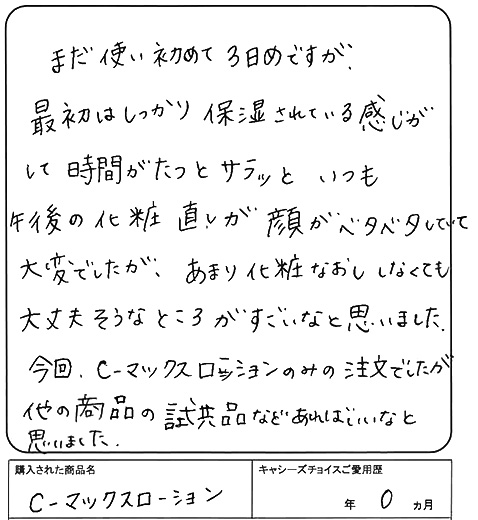 まだ使い初めて3日めですが、
最初はしっかり保湿されている感じが
して時間がたつとサラッと いつも
午後の化粧直しが顔がベタベタしていて
大変でしたが、あまり化粧なおししなくても
大丈夫そうなところがすごいなと思いました。
今回、C-マックスローションのみの注文でしたが
他の商品の試供品などあればいいなと
思いました.
購入された商品名
キャシーズチョイスご愛用歴
C-マックスローション
年 0 ヵ月